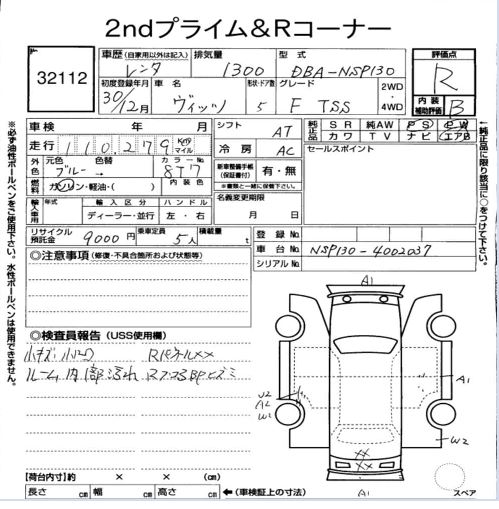 2ndプライム&Rコーナー
32112
車歴 (自家用以外は記入) レンタ
排気量 1300
型式 DBA-NSP130
評価点 R
初度登録年月 30年 12月
車名 ヴィッツ
形状・ドア数 5
グレード F TSS
2WD・4WD
内装補助評価 B
車検 年 月
シフト AT
純正品 SR 純AW PS PW
純正品 カワ TV ナビ エアB
走行 110,279 Km マイル
冷房 AC
セールスポイント
外色 元色 ブルー → 色替
カラーNo. 8T7
新車整備手帳(保証書付) 有・無
※書類と一緒に保管下さい。
燃料 ガソリン・軽油・( )
内装色
名義変更期限 月 日
輸入車用 年式 輸入区分 ディーラー・並行 ハンドル 左・右
リサイクル預託金 9000円
乗車定員 5人
積載量 t
登録No.
車台No. NSP130-4002037
シリアルNo.
◎注意事項 (修復・不具合箇所および状態等)
◎検査員報告 (USS使用欄)
小キズ 小凹 RパネルXX
ルーム内部汚れ
A1
U2
A2
W2
A1
W2
XX
XX
A1
スペア
【荷台内寸】約 × × (cm)
長さ cm 幅 cm 高さ cm ←(車検証上の寸法)
※必ず油性ボールペンをご使用下さい。水性ボールペンは使用できません。
※純正品に限り該当に○をつけて下さい。